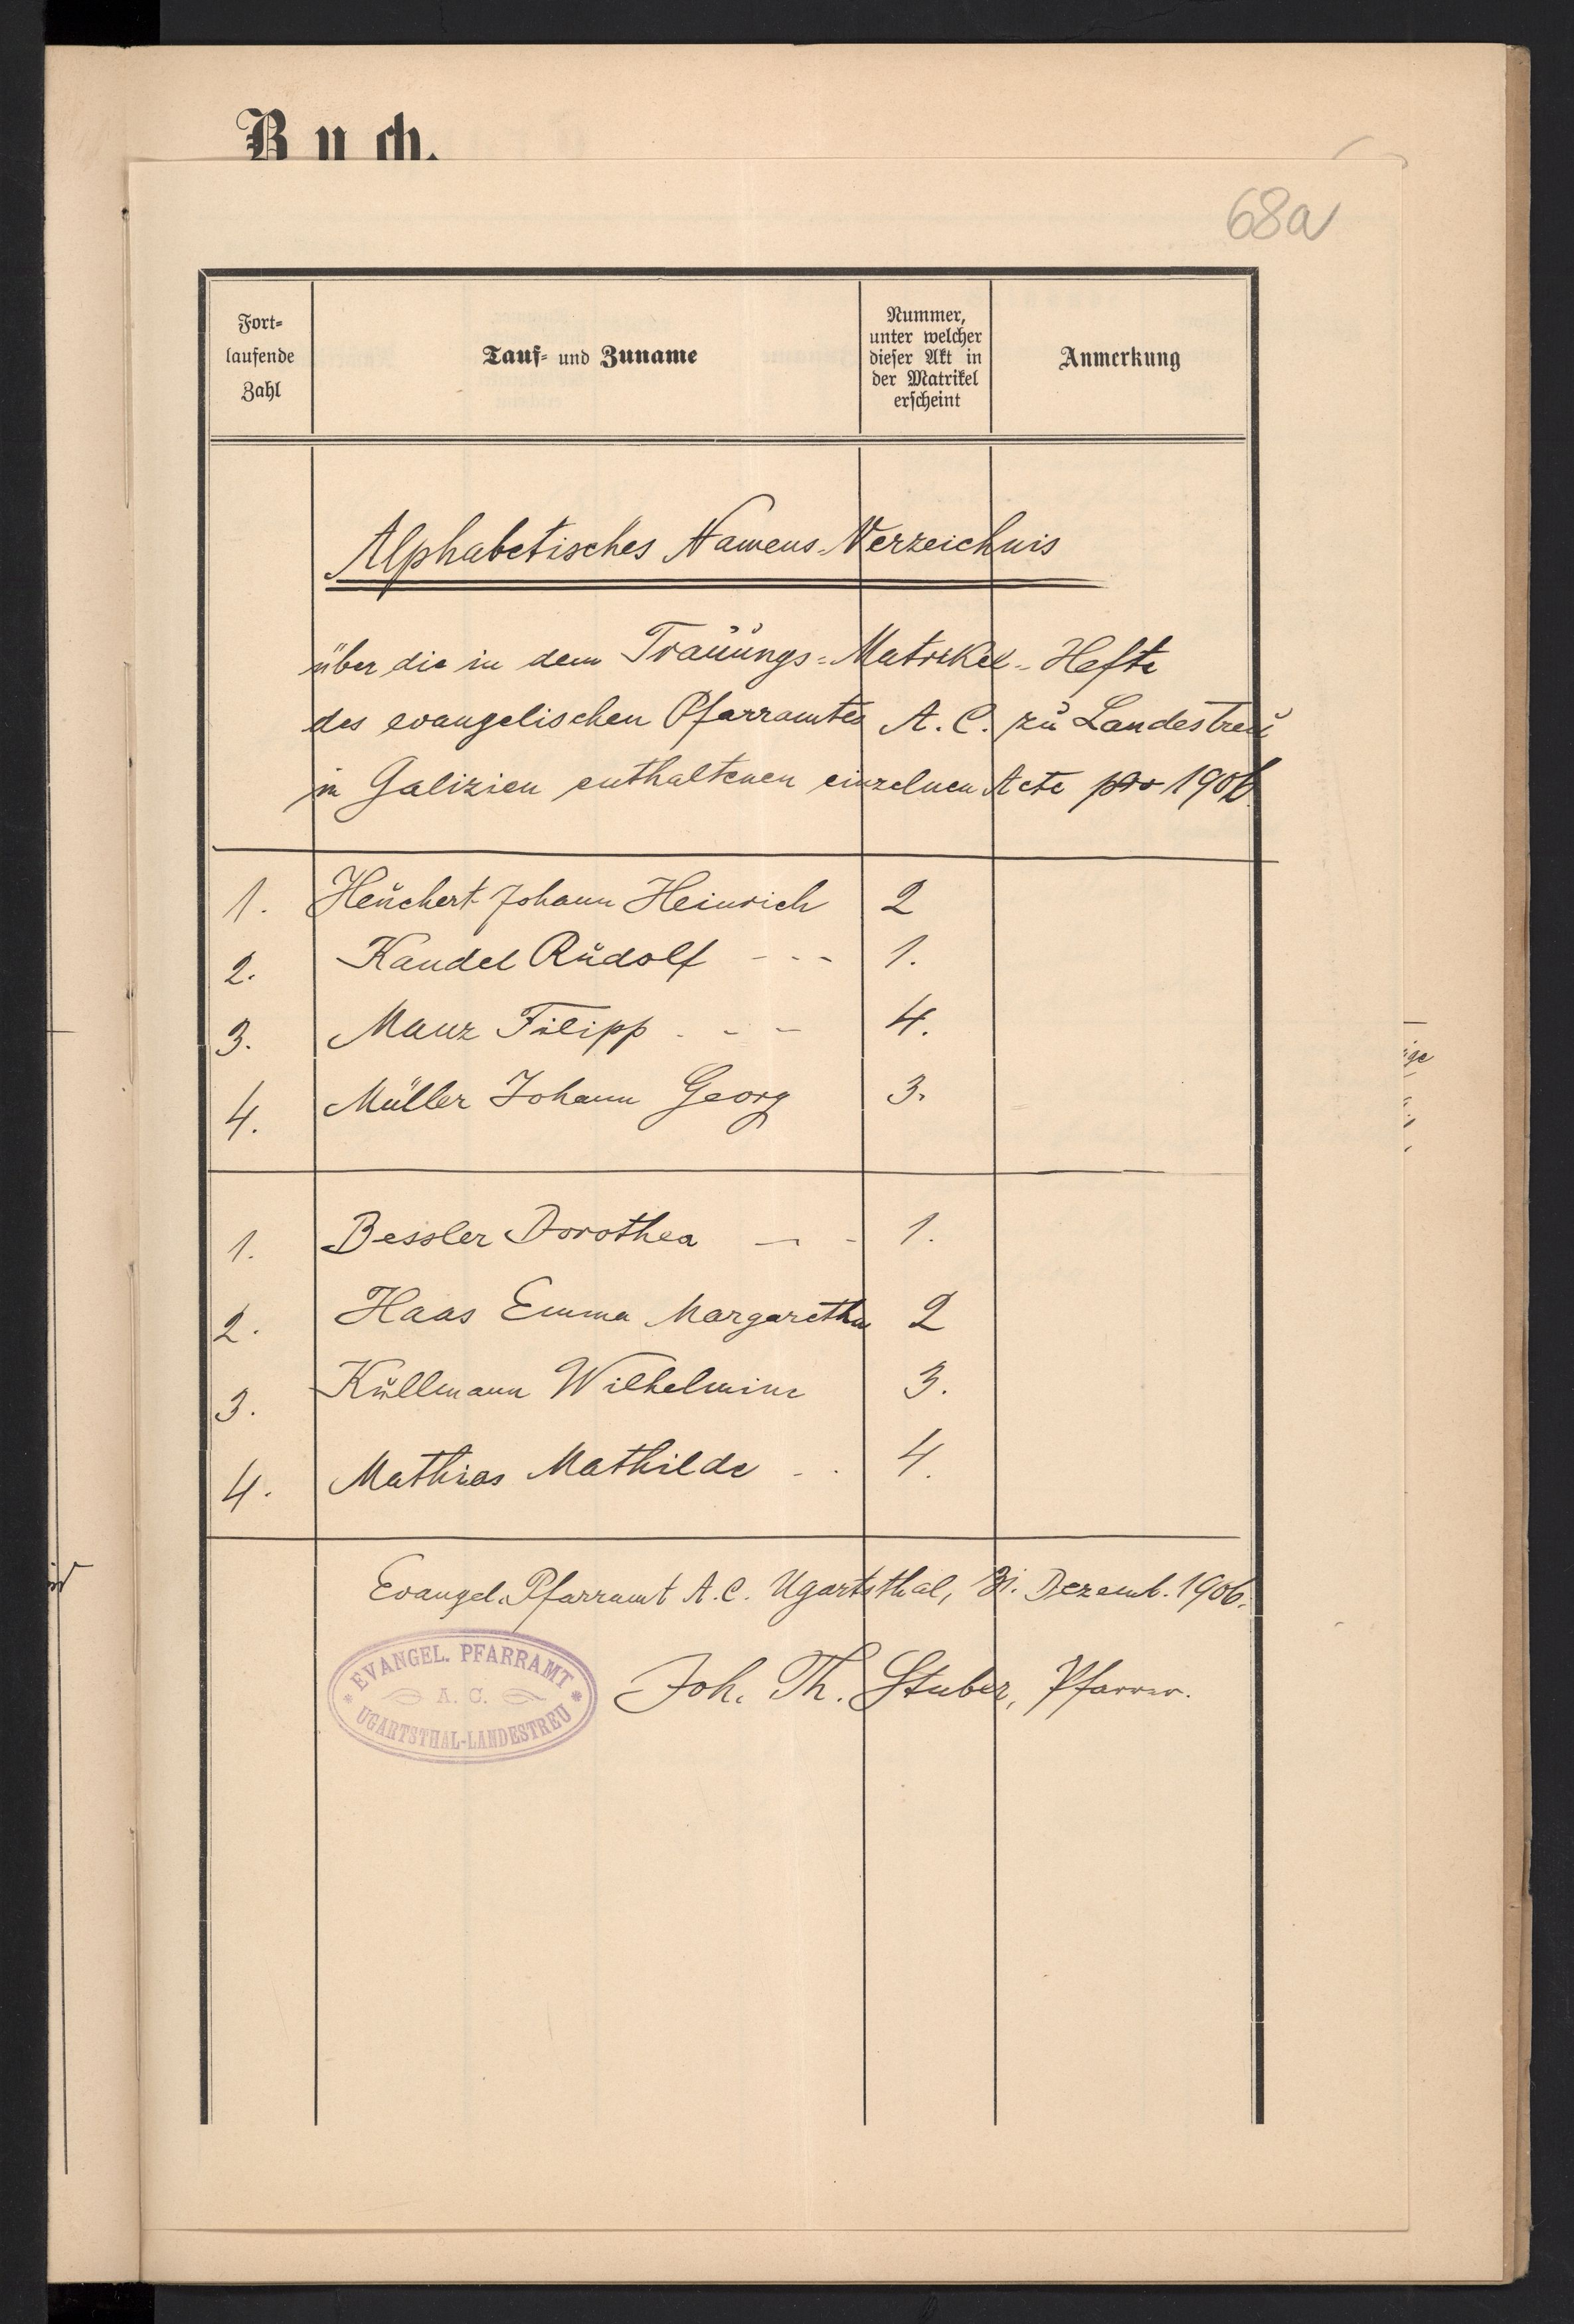 Buch.
68a
Fort-
laufende
Zahl
Tauf- und Zuname
Nummer,
unter welcher
dieser Akt in
der Matrikel
erscheint
Anmerkung
Alphabetisches Namens-Verzeichnis
über die in dem Trauungs-Matrikel-Hefte
des evangelischen Pfarramtes A. C. zu Landestreu
in Galizien enthaltenen einzelnen Acte pro 1906
1. Heuchert Johann Heinrich 2
2. Kandel Rudolf - - - 1.
3. Manz Filipp - - - 4.
4. Müller Johann Georg 3.
1. Bessler Dorothea - - 1.
2. Haas Emma Margaretha 2
3. Kullmann Wilhelmine 3.
4. Mathias Mathilde - - 4.
Evangel. Pfarramt A. C. Ugartsthal, 31. Dezemb. 1906.
EVANGEL. PFARRAMT
A. C.
UGARTSTHAL-LANDESTREU
Joh. Th. Stuber, Pfarrer.